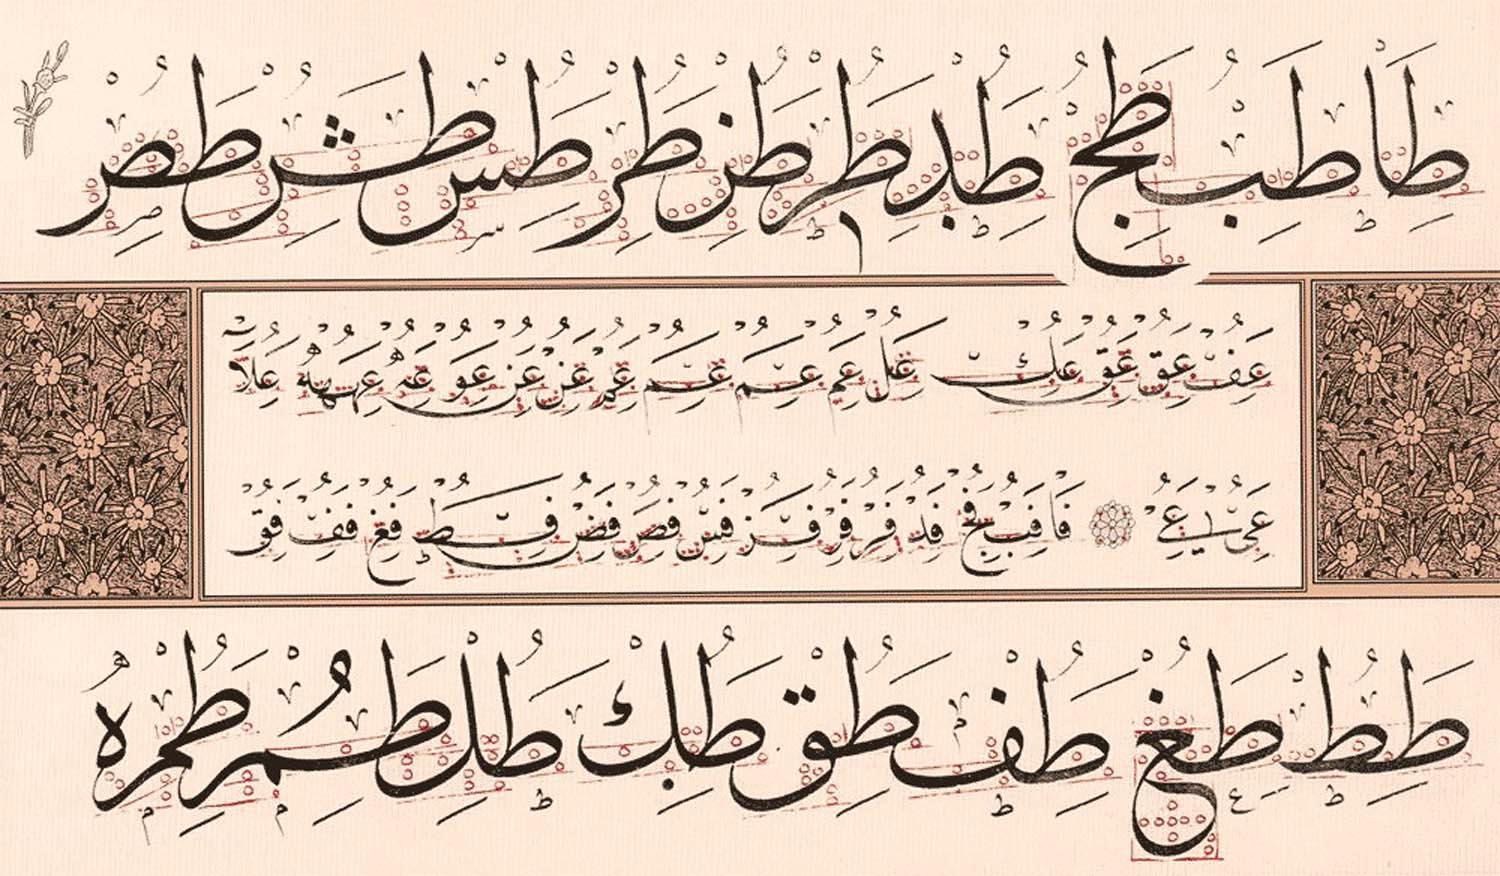 طا طب طج طد طر طز طر طس طش طص
عف عق عق عك عل عم عم عم عن عن عو عه علا
عى عے فا فب فج فد فر فر فز فس فص فض فط فغ فف فق
طط طغ طف طق طك طل طم طم ه